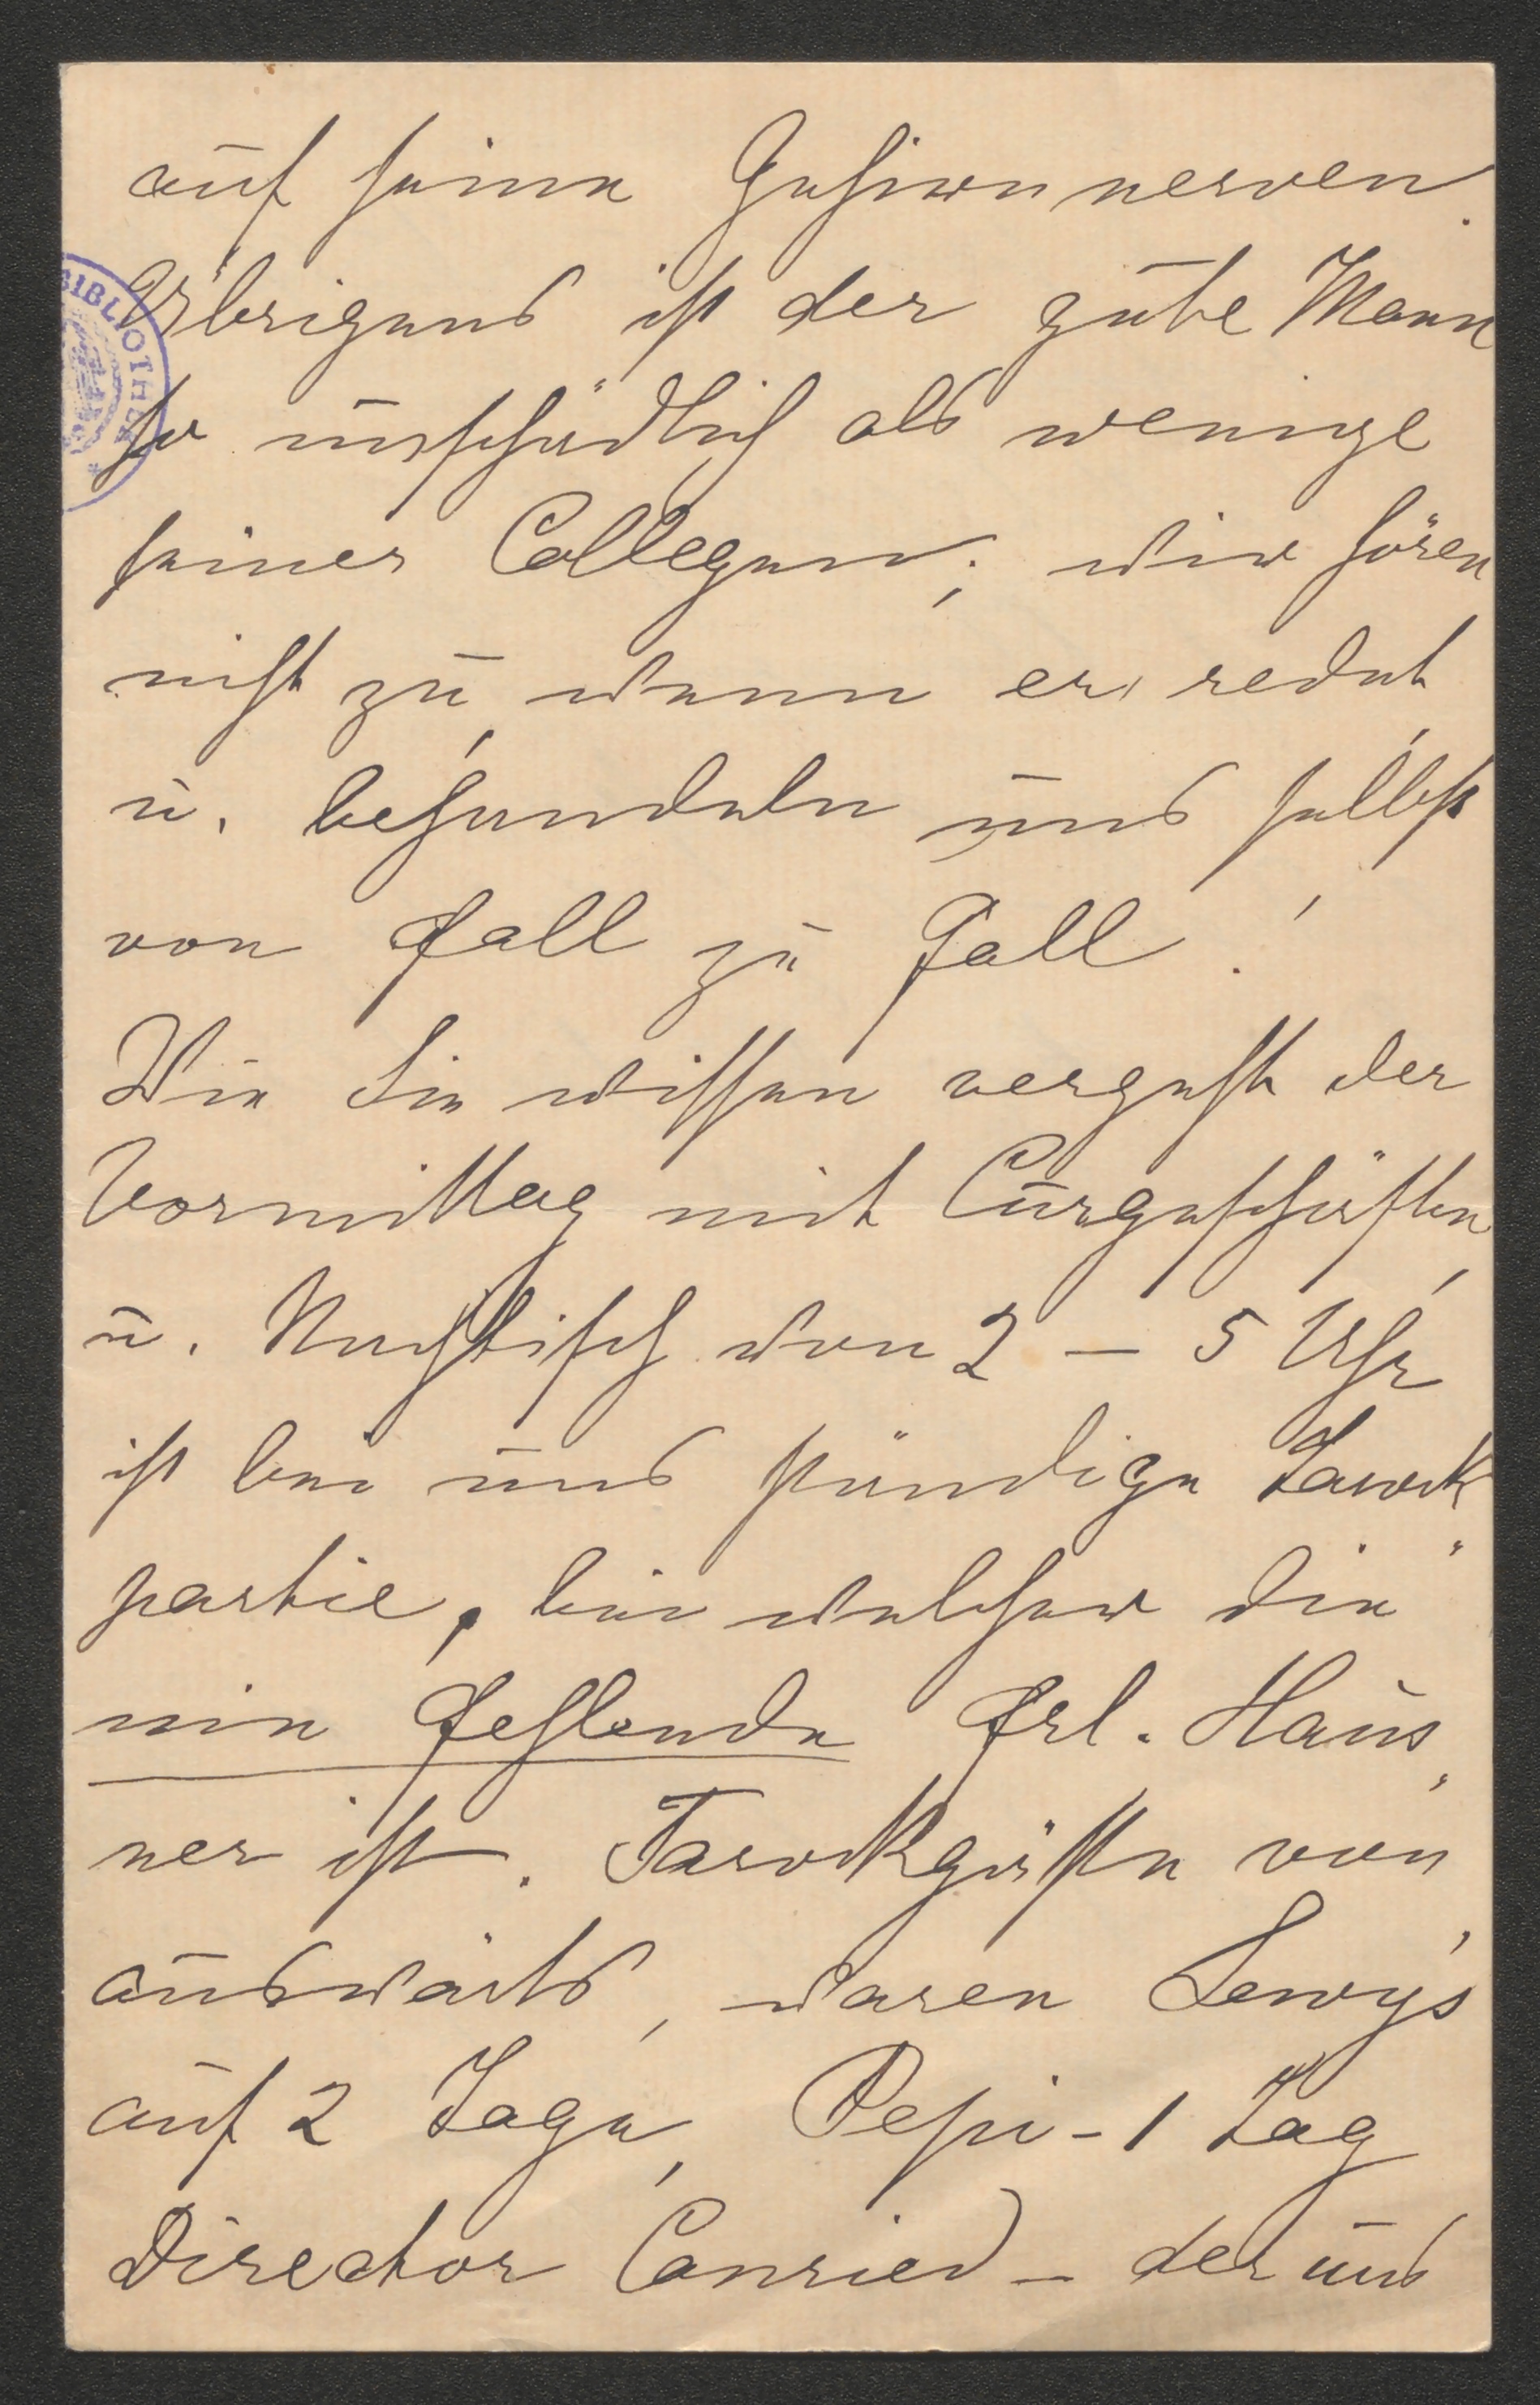 auf seine Gehirnnerven.
Übrigens ist der gute Mann
so unschädlich als wenige
seiner Collegen; wir hören
nicht zu, wenn er redet,
u. behandeln uns selbst
von Fall zu Fall!
Wie Sie wissen vergeht der
Vormittag mit Curgeschäften,
u. Nachtisch von 2 – 5 Uhr
ist bei uns ständige Tarock
partie, bei welcher die
nie fehlende Frl. Haus„
ner ist. Tarockgäste von
auswärts, waren Lewy's
auf 2 Tage, Pepi – 1 Tag
Director Conried – der uns
BIBLIOTHEK